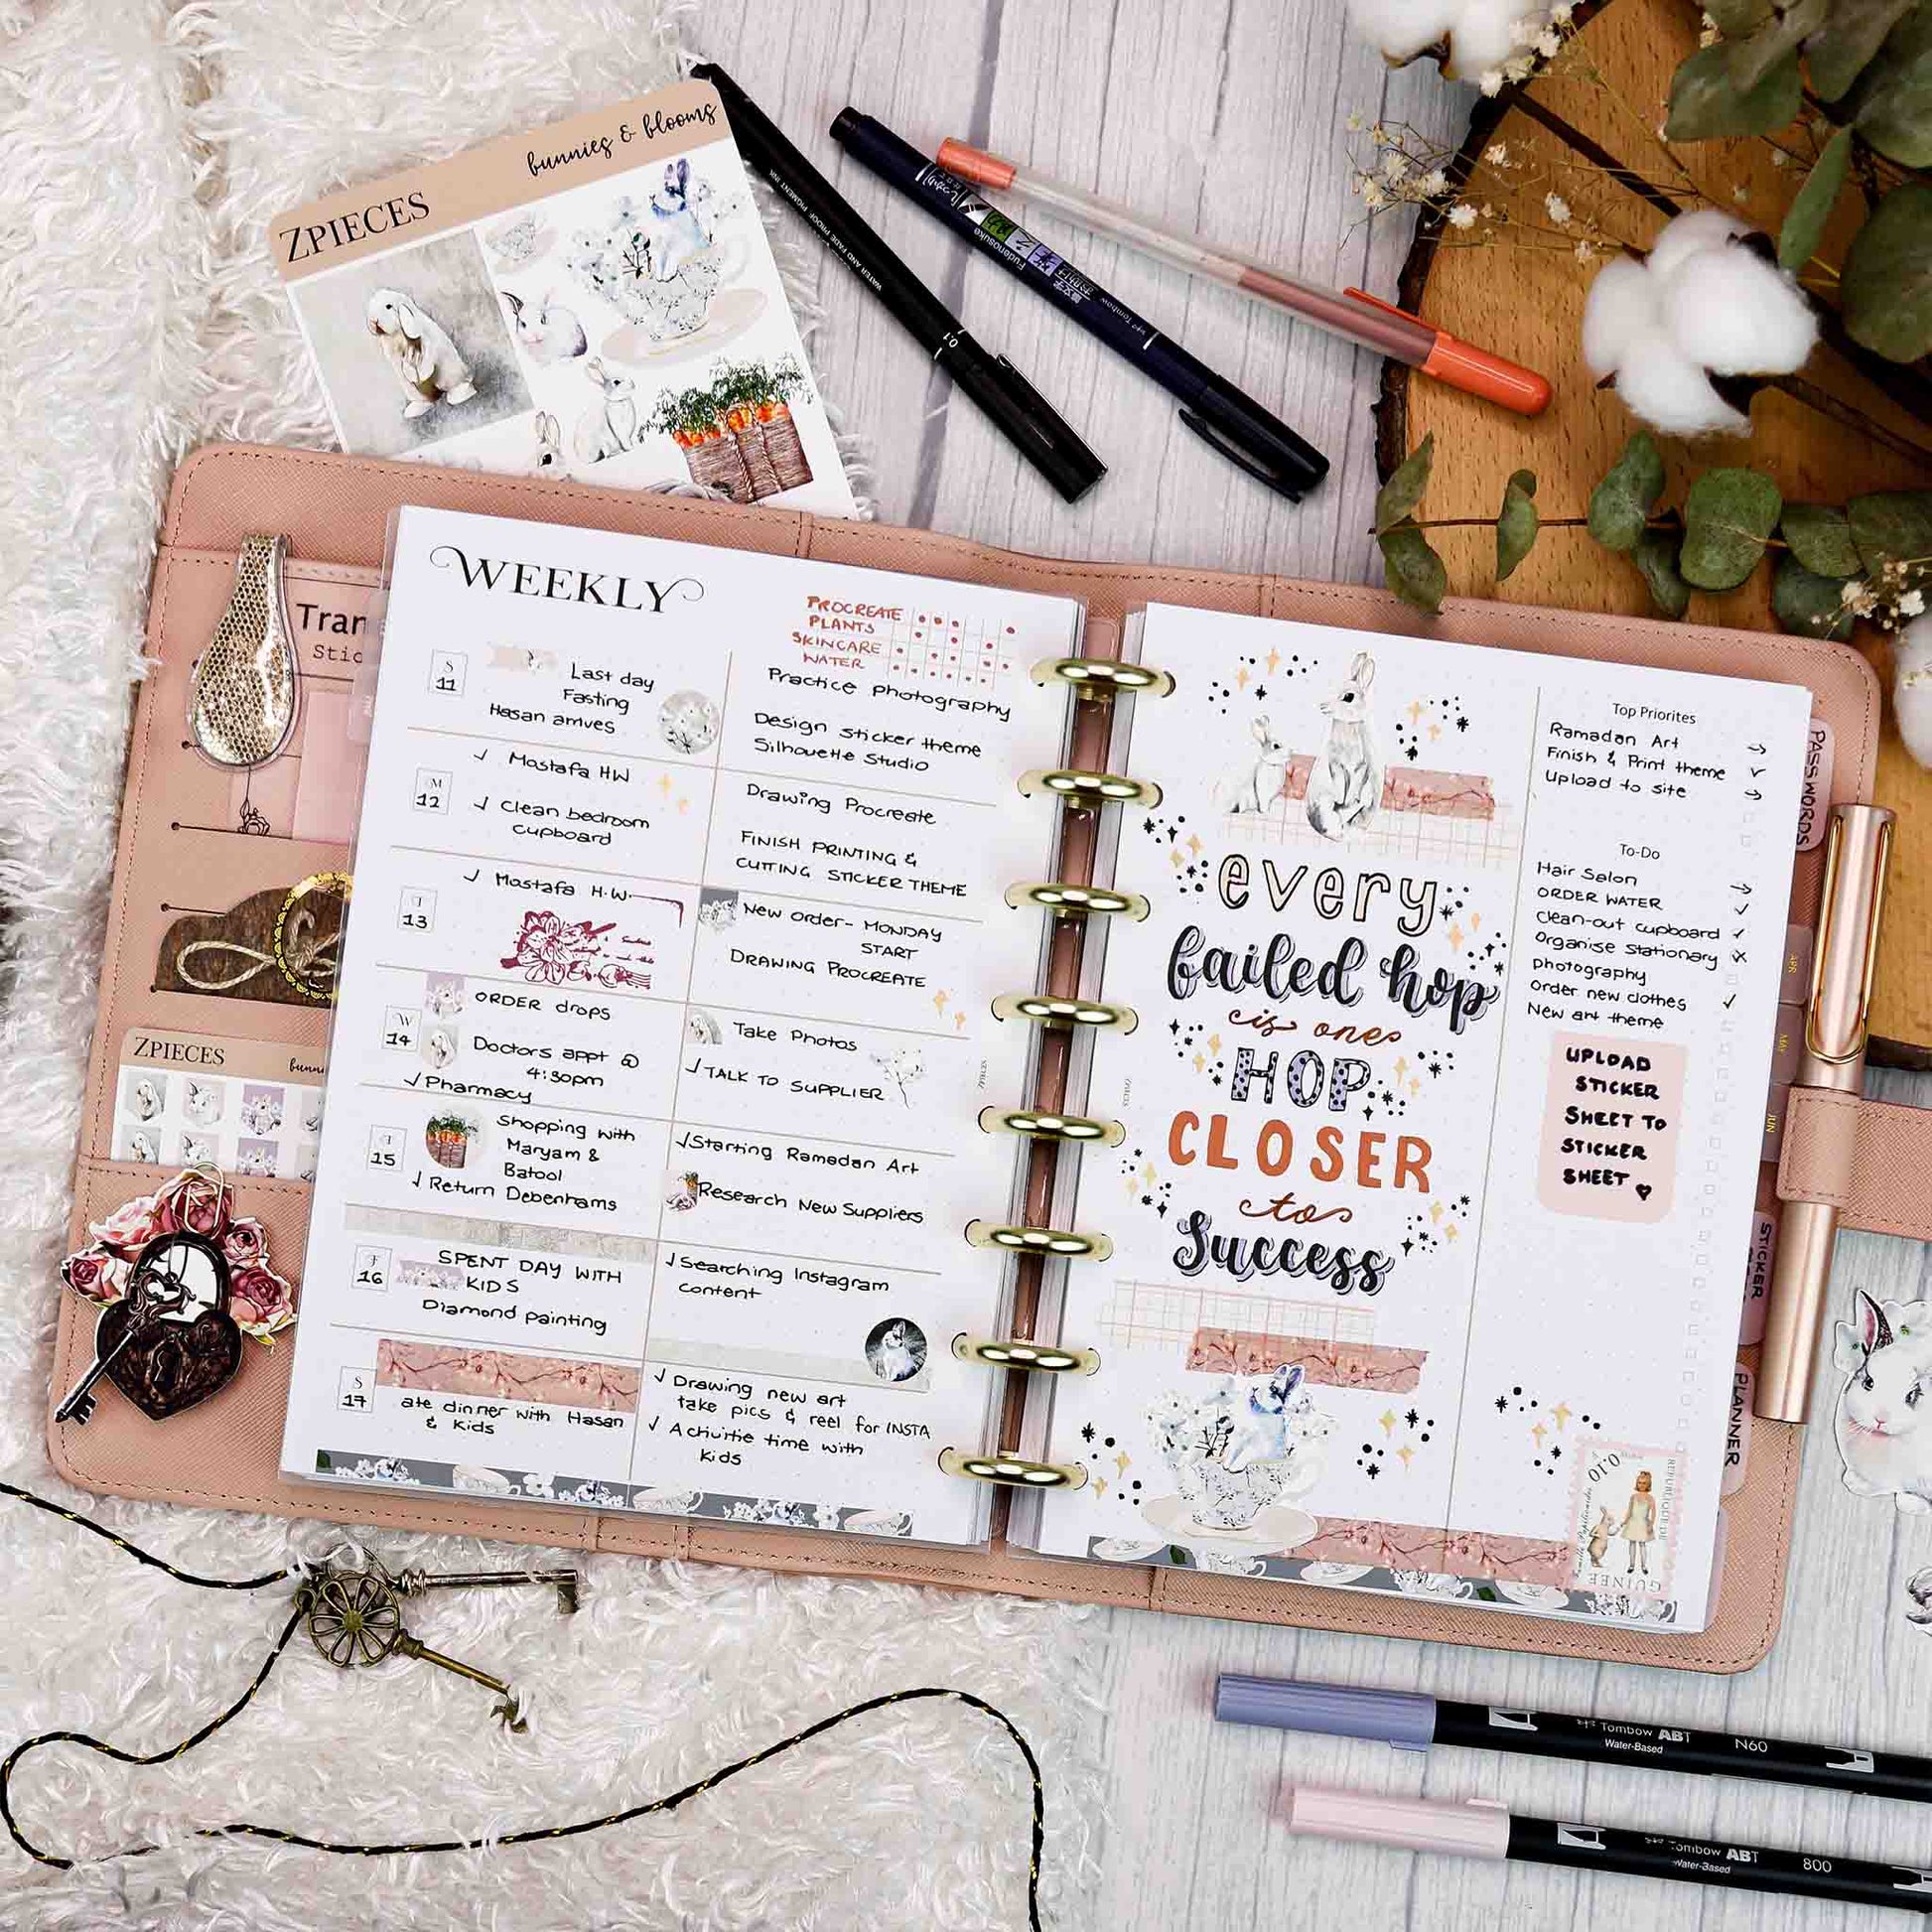 bunnies & blooms
ZPIECES
WATER AND FADE PROOF, PIGMENT INK
0.1
Fudenosuke
Tombow
Tran
Stic
ZPIECES
WEEKLY
PROCREATE
PLANTS
SKINCARE
WATER
S
11
Last day
Fasting
Hasan arrives
Practice photography
Design Sticker theme
Silhouette Studio
M
12
✓ Mostafa HW
✓ Clean bedroom
cupboard
Drawing Procreate
FINISH PRINTING &
CUTTING STICKER THEME
T
13
✓ Mostafa H.W.
New order- MONDAY
START
DRAWING PROCREATE
W
14
ORDER drops
Doctors appt @
4:30pm
✓ Pharmacy
Take Photos
✓ TALK TO SUPPLIER
T
15
Shopping with
Maryam &
Batool
✓ Return Debenhams
✓ Starting Ramadan Art
Research New Suppliers
F
16
SPENT DAY WITH
KIDS
Diamond painting
✓ Searching Instagram
content
S
17
ate dinner with Hasan
& Kids
✓ Drawing new art
take pics & reel for INSTA
✓ Activitie time with
Kids
every
failed hop
is one
HOP
CLOSER
to
Success
Top Priorites
Ramadan Art →
Finish & Print theme ✓
Upload to site →
To-Do
Hair Salon →
ORDER WATER ✓
Clean-out cupboard ✓
Organise Stationary x
Photography
Order new clothes ✓
New art theme
UPLOAD
STICKER
SHEET TO
STICKER
SHEET ♥
0.10
GUINEE
PASSWORDS
APR
MAY
JUN
STICKER
PLANNER
Tombow ABT N60
Water-Based
ombow ABT 800
Water-Based